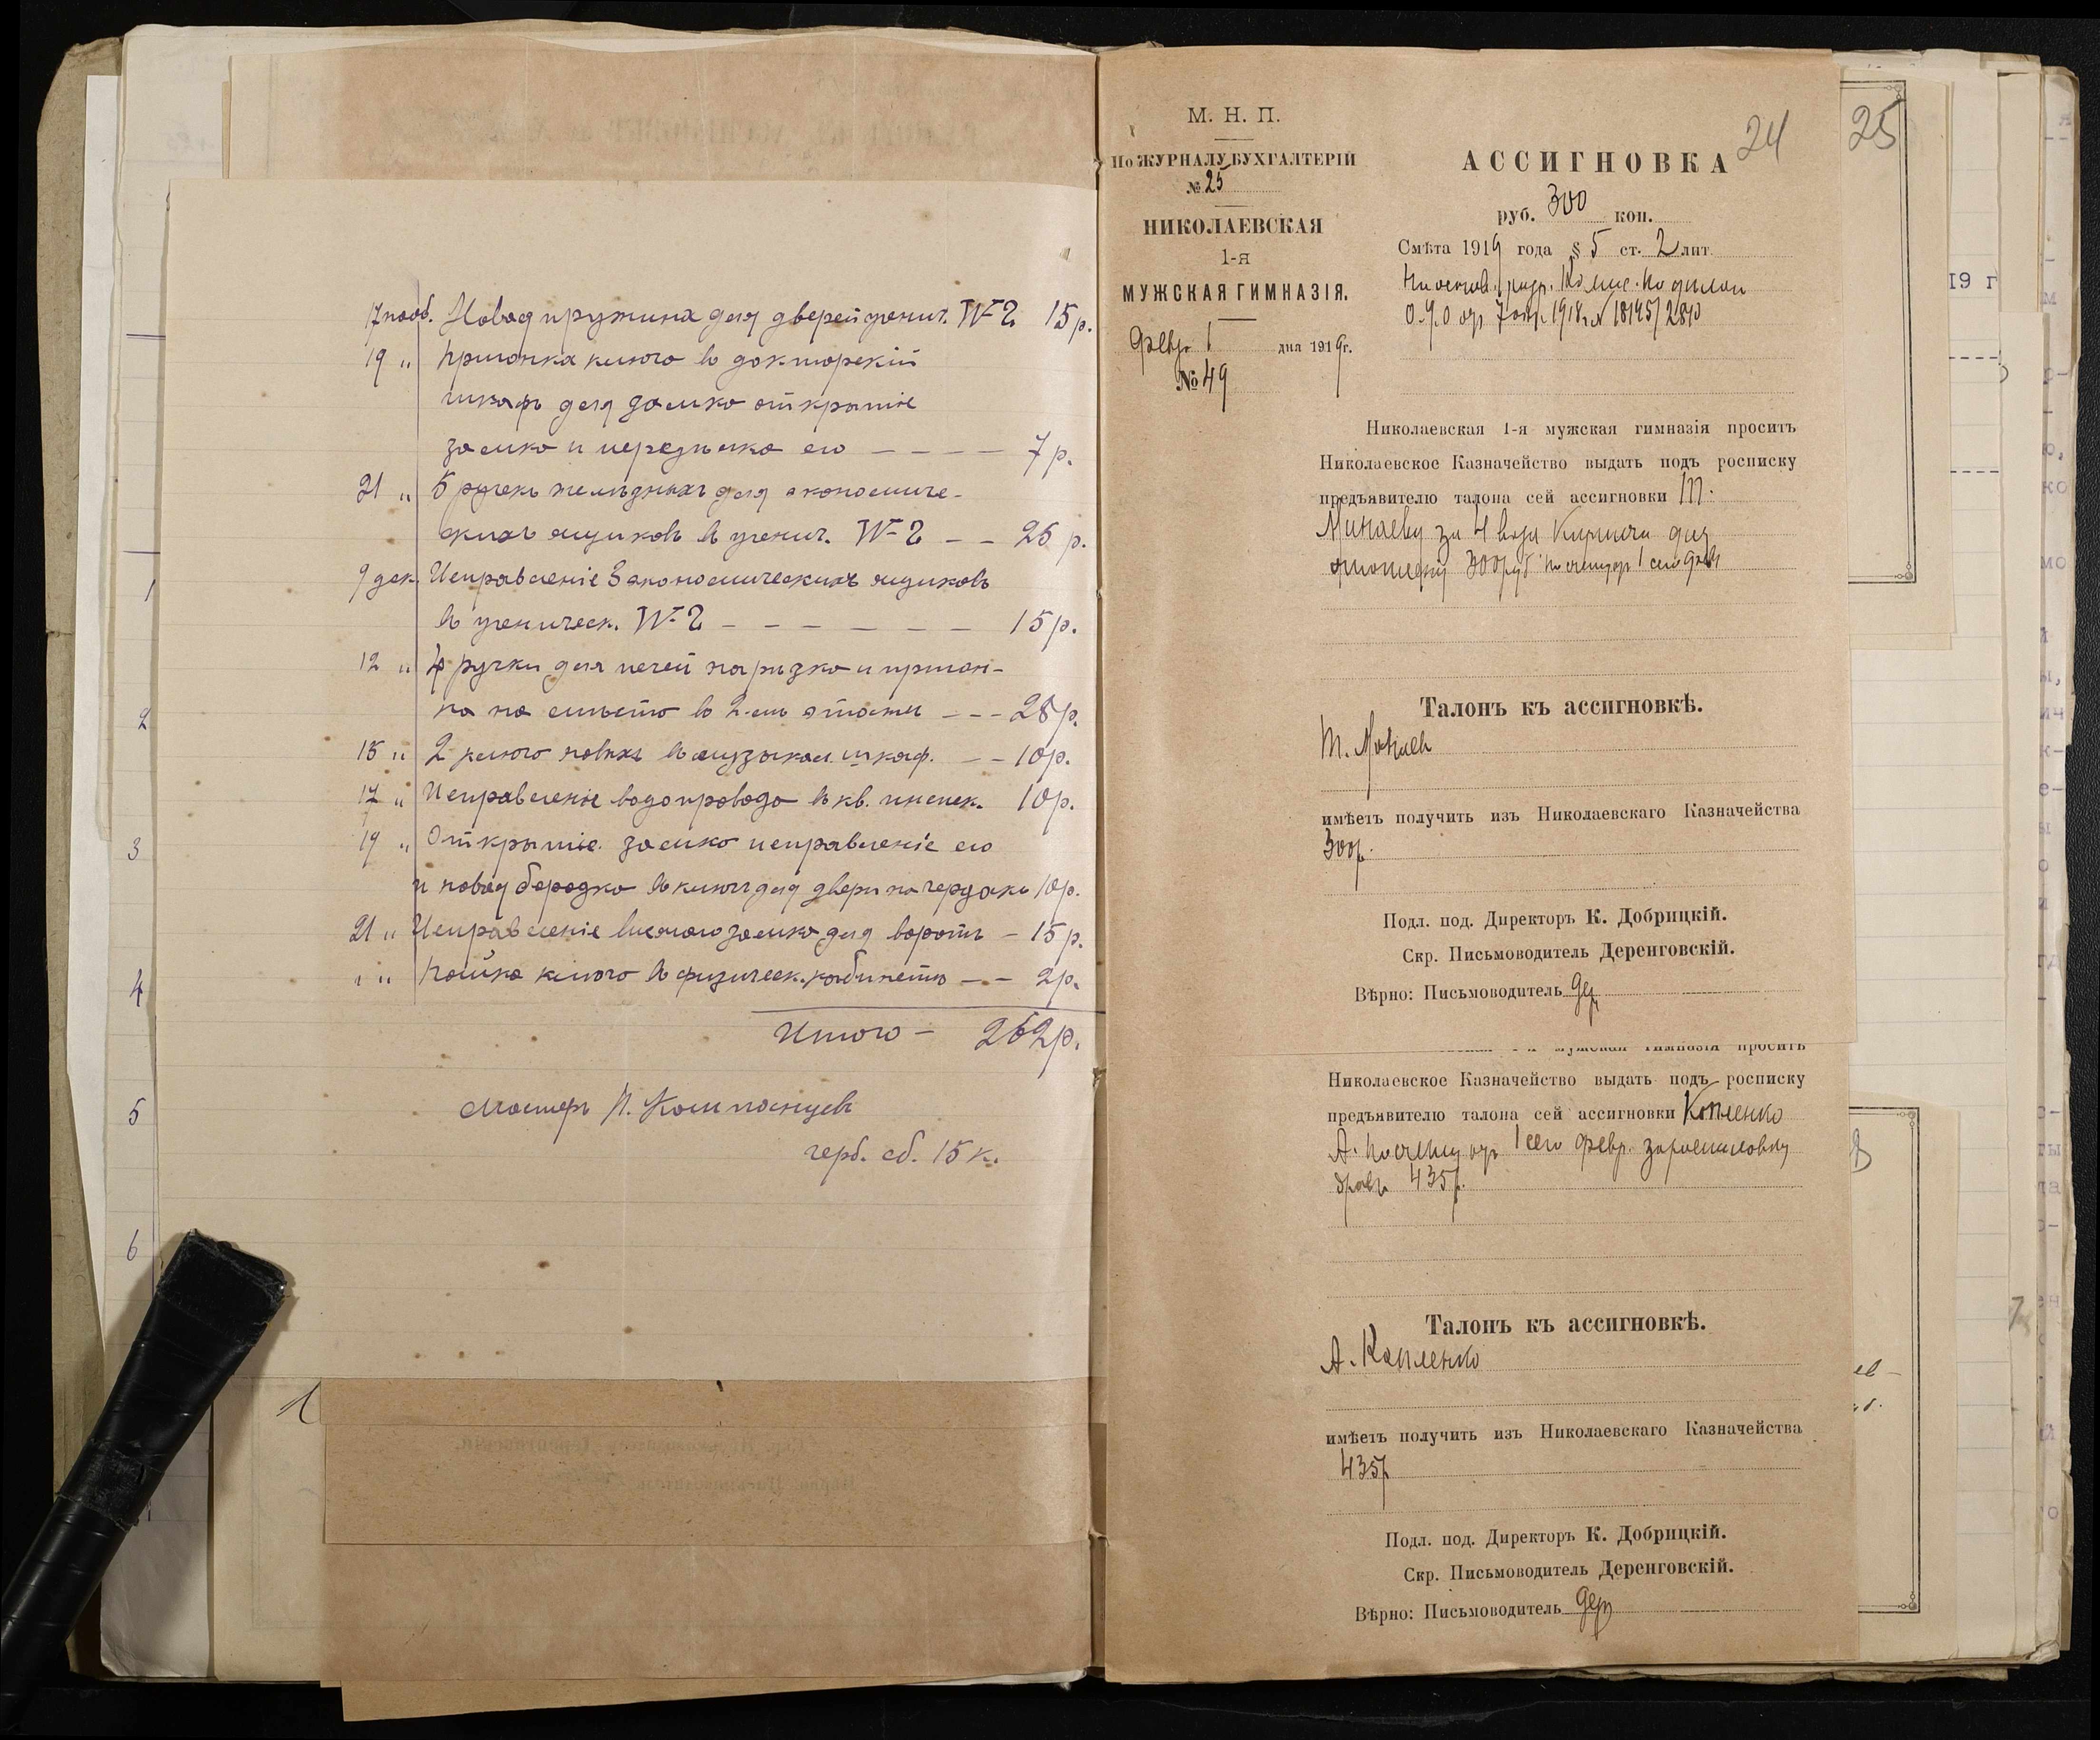 17 нояб. Новая пружина для дверей ученич. W-C 15 р.
19 " Пригонка ключа въ докторскій
шкафъ для замка открытіе
замка и передѣлка его – – – – 7 р.
21 " 5 ручекъ желѣзныхъ для экономиче-
скихъ ящиковъ въ ученич. W-C – – 25 р.
9 дек. Исправленіе 3 экономическихъ ящиковъ
въ ученическ. W-C – – – – – – – 15 р.
12 " 4 ручки для печей нарѣзка и пригон-
ка на мѣсто въ 2-мъ этажѣ – – – 28 р.
15 " 2 ключа новыхъ въ музыкал. шкаф. – – 10 р.
17 " Исправленіе водопровода въ кв. инспек. 10 р.
19 " Открытіе замка исправленіе его
и новая бородка въ ключъ для двери на чердакъ 10 р.
21 " Исправленіе висячаго замка для воротъ – 15 р.
" " Пайка ключа въ физическ. кабинетъ – – 2 р.
Итого – 262 р.
Мастеръ П. Компанцевъ
герб. сб. 15 к.
1
2
3
4
5
6
М. Н. П.
По ЖУРНАЛУ БУХГАЛТЕРІИ
№ 25
НИКОЛАЕВСКАЯ
1-я
МУЖСКАЯ ГИМНАЗІЯ.
Февр. 1 дня 1919 г.
№ 49
24
25
АССИГНОВКА
руб. 300 коп.
Смѣта 1919 года § 5 ст. 2 лит.
На основ. разр. Комис. по дѣлам
О. У. О от 7 1918 г. № 18145/2840
Николаевская 1-я мужская гимназія проситъ
Николаевское Казначейство выдать подъ росписку
предъявителю талона сей ассигновки Т.
Минаеву за 4 воза Кирпича для
300 руб по счету от 1 сего февр
Талонъ къ ассигновкѣ.
Т. Минаев
имѣетъ получить изъ Николаевскаго Казначейства
300 р.
Подл. под. Директоръ К. Добрицкій.
Скр. Письмоводитель Деренговскій.
Вѣрно: Письмоводитель Дер
мужская гимназія проситъ
Николаевское Казначейство выдать подъ росписку
предъявителю талона сей ассигновки Копленко
А. по счету от 1 сего февр. за распиловку
дровъ 435 р.
Талонъ къ ассигновкѣ.
А. Копленко
имѣетъ получить изъ Николаевскаго Казначейства
435 р
Подл. под. Директоръ К. Добрицкій.
Скр. Письмоводитель Деренговскій.
Вѣрно: Письмоводитель Дер
19 г
7